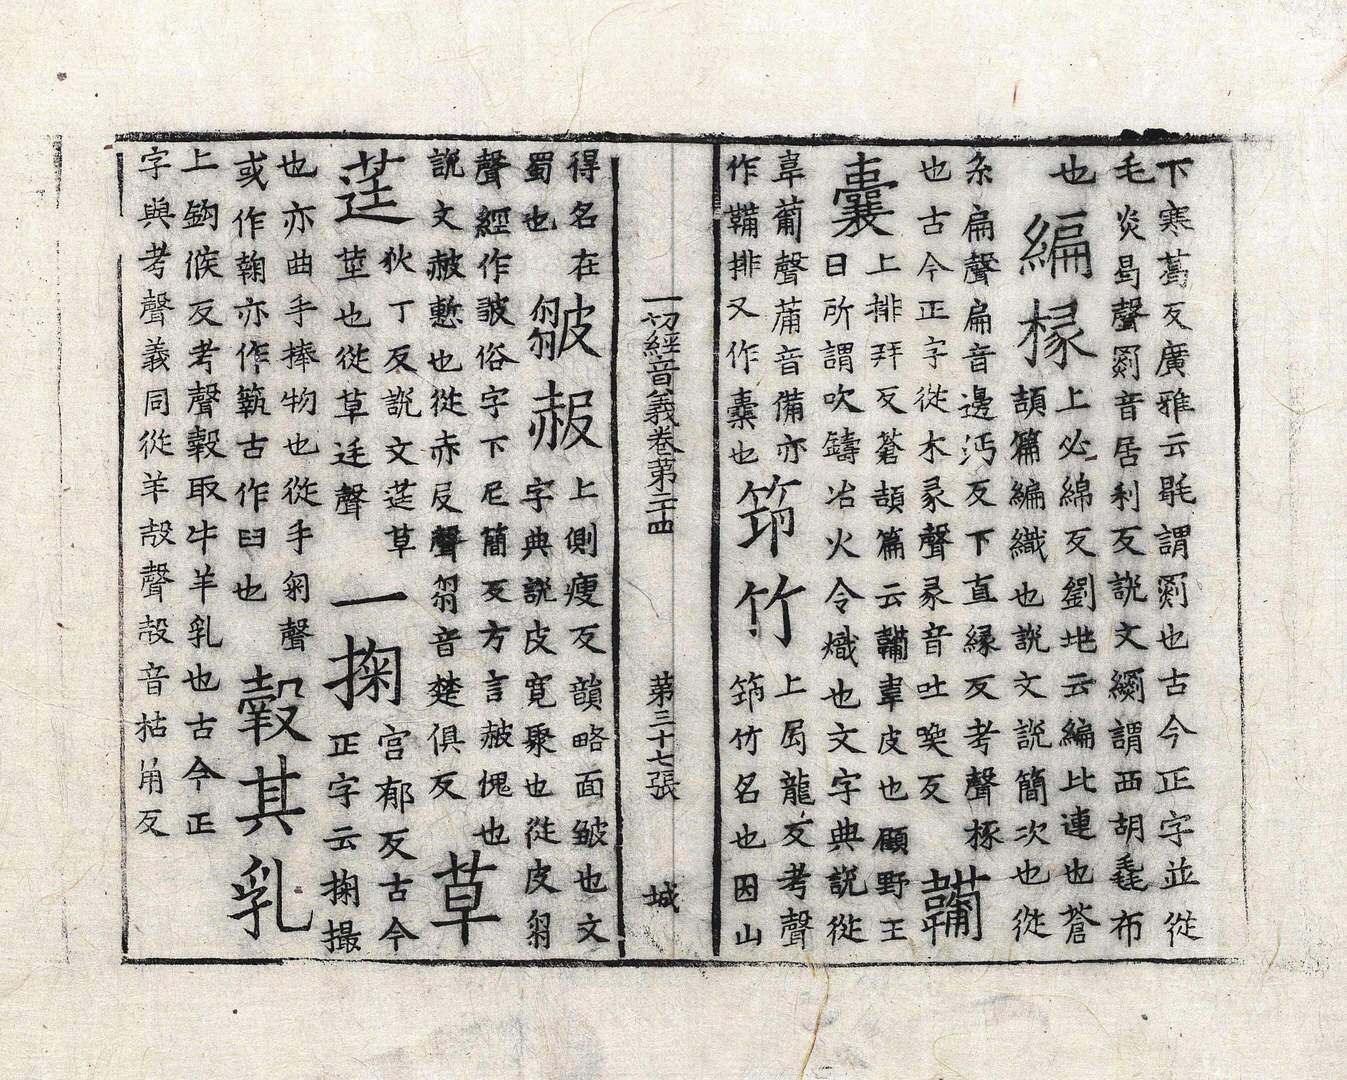 下寒葛反廣雅云㲎謂罽也古今正字並從
毛炎曷聲罽音居利反説文謂西胡毳布
也
編椽
上必綿反劉地云編比連也蒼
頡篇編織也説文説簡次也從
糸扁聲扁音邊沔反下直縁反考聲椓
也古今正字從木彖聲彖音吐奱反
韛囊
上排拜反蒼頡篇云韛韋皮也顧野王
曰所謂吹鑄冶火令熾也文字典説從
韋葡聲葡音備亦
作鞴排又作橐也
笻竹
上局龍反考聲
笻竹名也因山
一切經音義卷第二十四 第三十七張 城
得名在
蜀也
皺赧
上側瘦反韻略面皺也文
字典説皮寬聚也從皮芻
聲經作皷俗字下尼簡反方言赧愧也
説文赧慙也從赤𠬝聲芻音楚俱反
草莛
狄丁反説文莛草
莖也從草廷聲
一掬
宮郁反古今
正字云掬撮
也亦曲手捧物也從手匊聲
或作鞠亦作古作臼也
㝅其乳
上鈎候反考聲㝅取牛羊乳也古今正
字與考聲義同從羊㱿聲㱿音枯角反